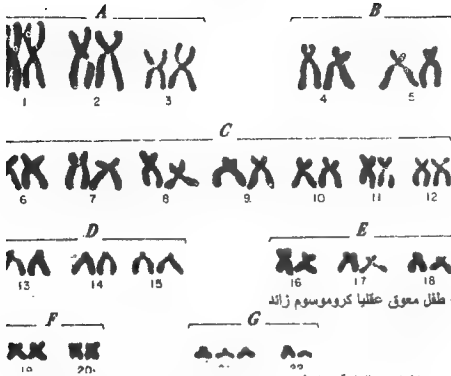 A B
1 2 3 4 5
C
6 7 8 9 10 11 12
D E
13 14 15 16 17 18
طفل معوق عقليا كروموسوم زائد
F G
19 20 22